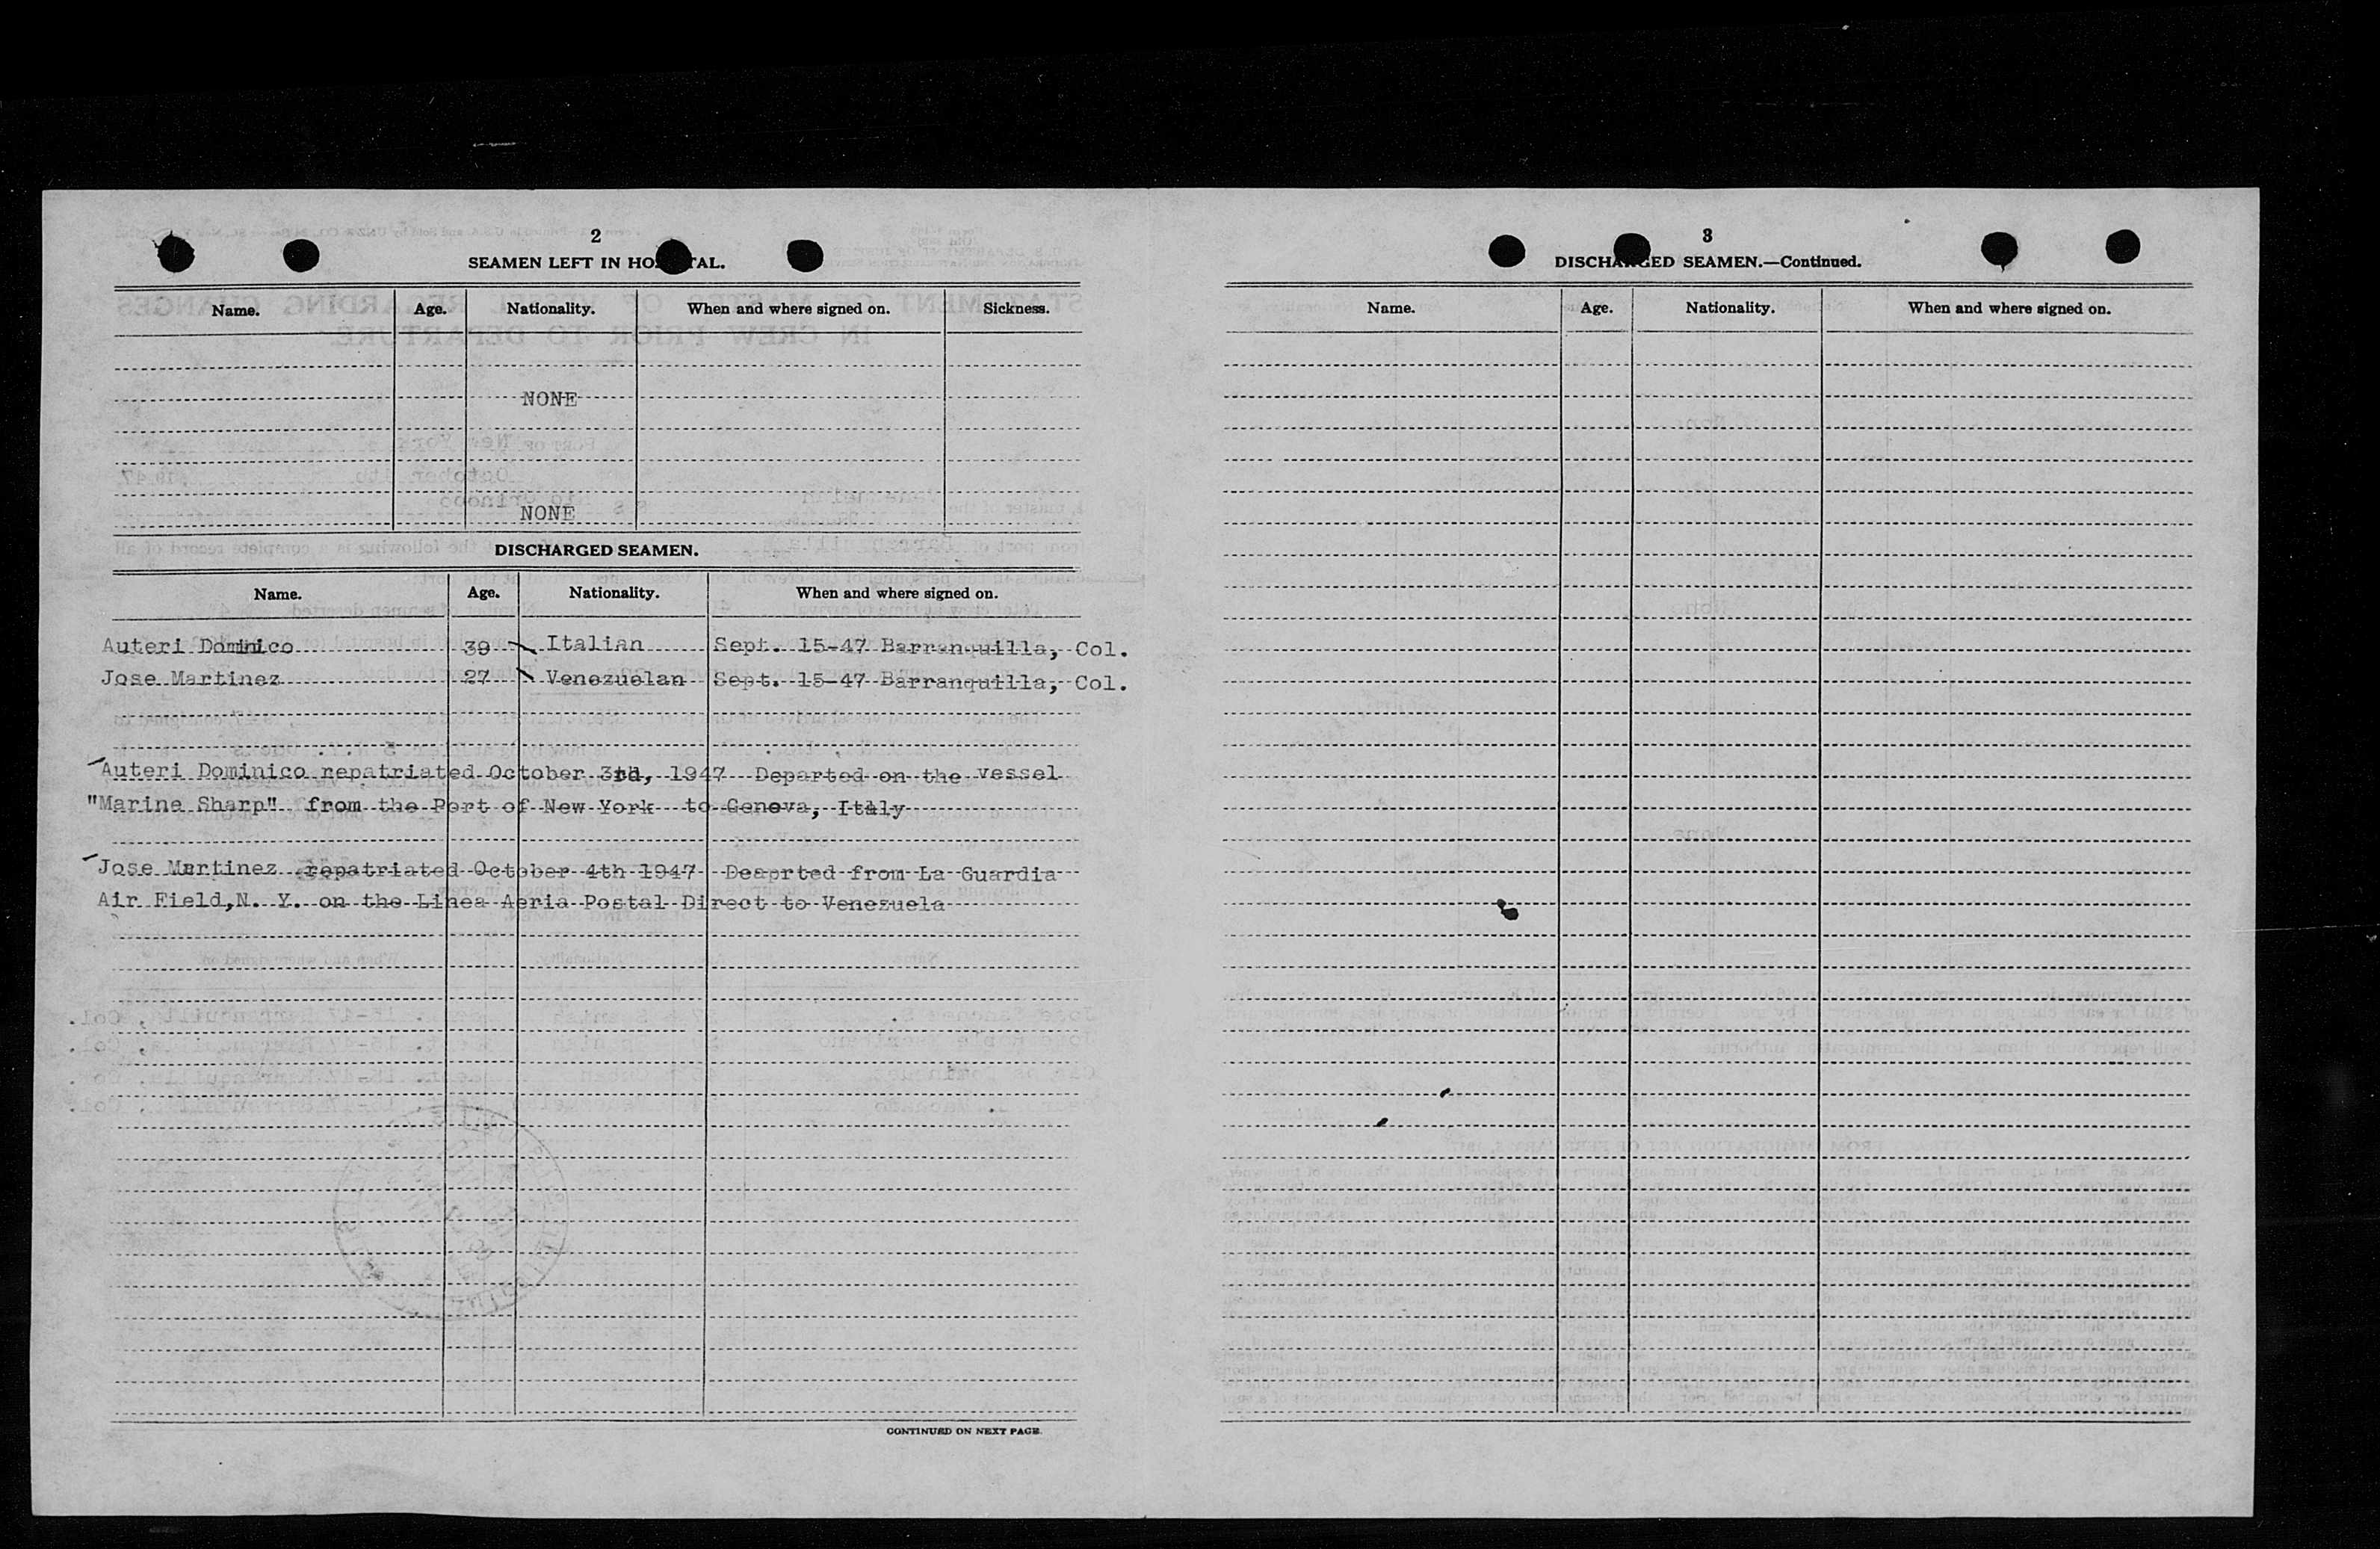 2
SEAMEN LEFT IN HOSPITAL.
Name. Age. Nationality. When and where signed on. Sickness.
NONE
NONE
DISCHARGED SEAMEN.
Name. Age. Nationality. When and where signed on.
Auteri Dominico 39 Italian Sept. 15-47 Barranquilla, Col.
Jose Martinez 27 Venezuelan Sept. 15-47 Barranquilla, Col.
Auteri Dominico repatriated October 3rd, 1947 Departed on the vessel
"Marine Sharp" from the Port of New York to Genova, Italy
Jose Martinez repatriated October 4th 1947 Deaprted from La Guardia
Air Field,N. Y. on the Linea Aeria Postal Direct to Venezuela
CONTINUED ON NEXT PAGE.
3
DISCHARGED SEAMEN.—Continued.
Name. Age. Nationality. When and where signed on.